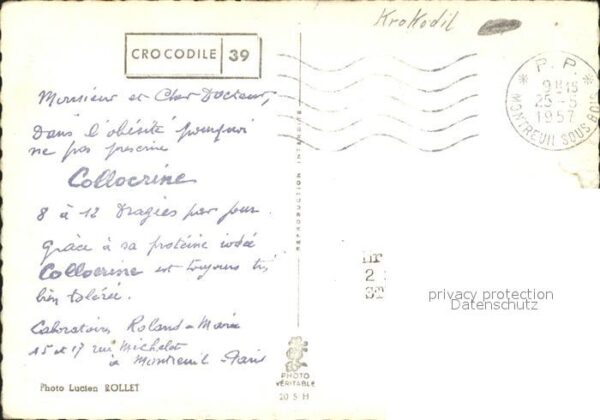 Krokodil
CROCODILE 39
P. P.
9H15
25-5
1957
MONTREUIL SOUS BOIS
Monsieur et Cher Docteur,
Dans l'obésité pourquoi
ne pas prescrire
Collocrine
8 à 12 Dragées par jour.
Grâce à sa protéine iodée
Collocrine est toujours très
bien tolérée.
Laboratoires Roland-Marie
15 et 17 rue Michelet
à Montreuil Paris
Photo Lucien ROLLET
REPRODUCTION INTERDITE
PHOTO
VÉRITABLE
20 5 H
privacy protection
Datenschutz